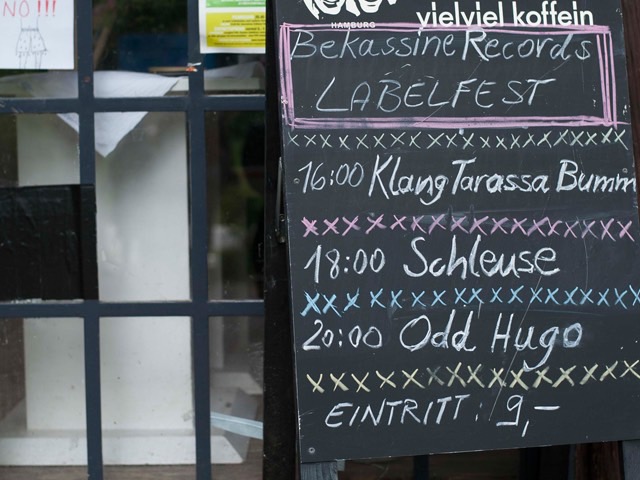 NO!!!
HAMBURG
vielviel koffein
Bekassine Records
LABELFEST
16:00 Klang Tarassa Bumm
18:00 Schleuse
20:00 Odd Hugo
EINTRITT: 9,–